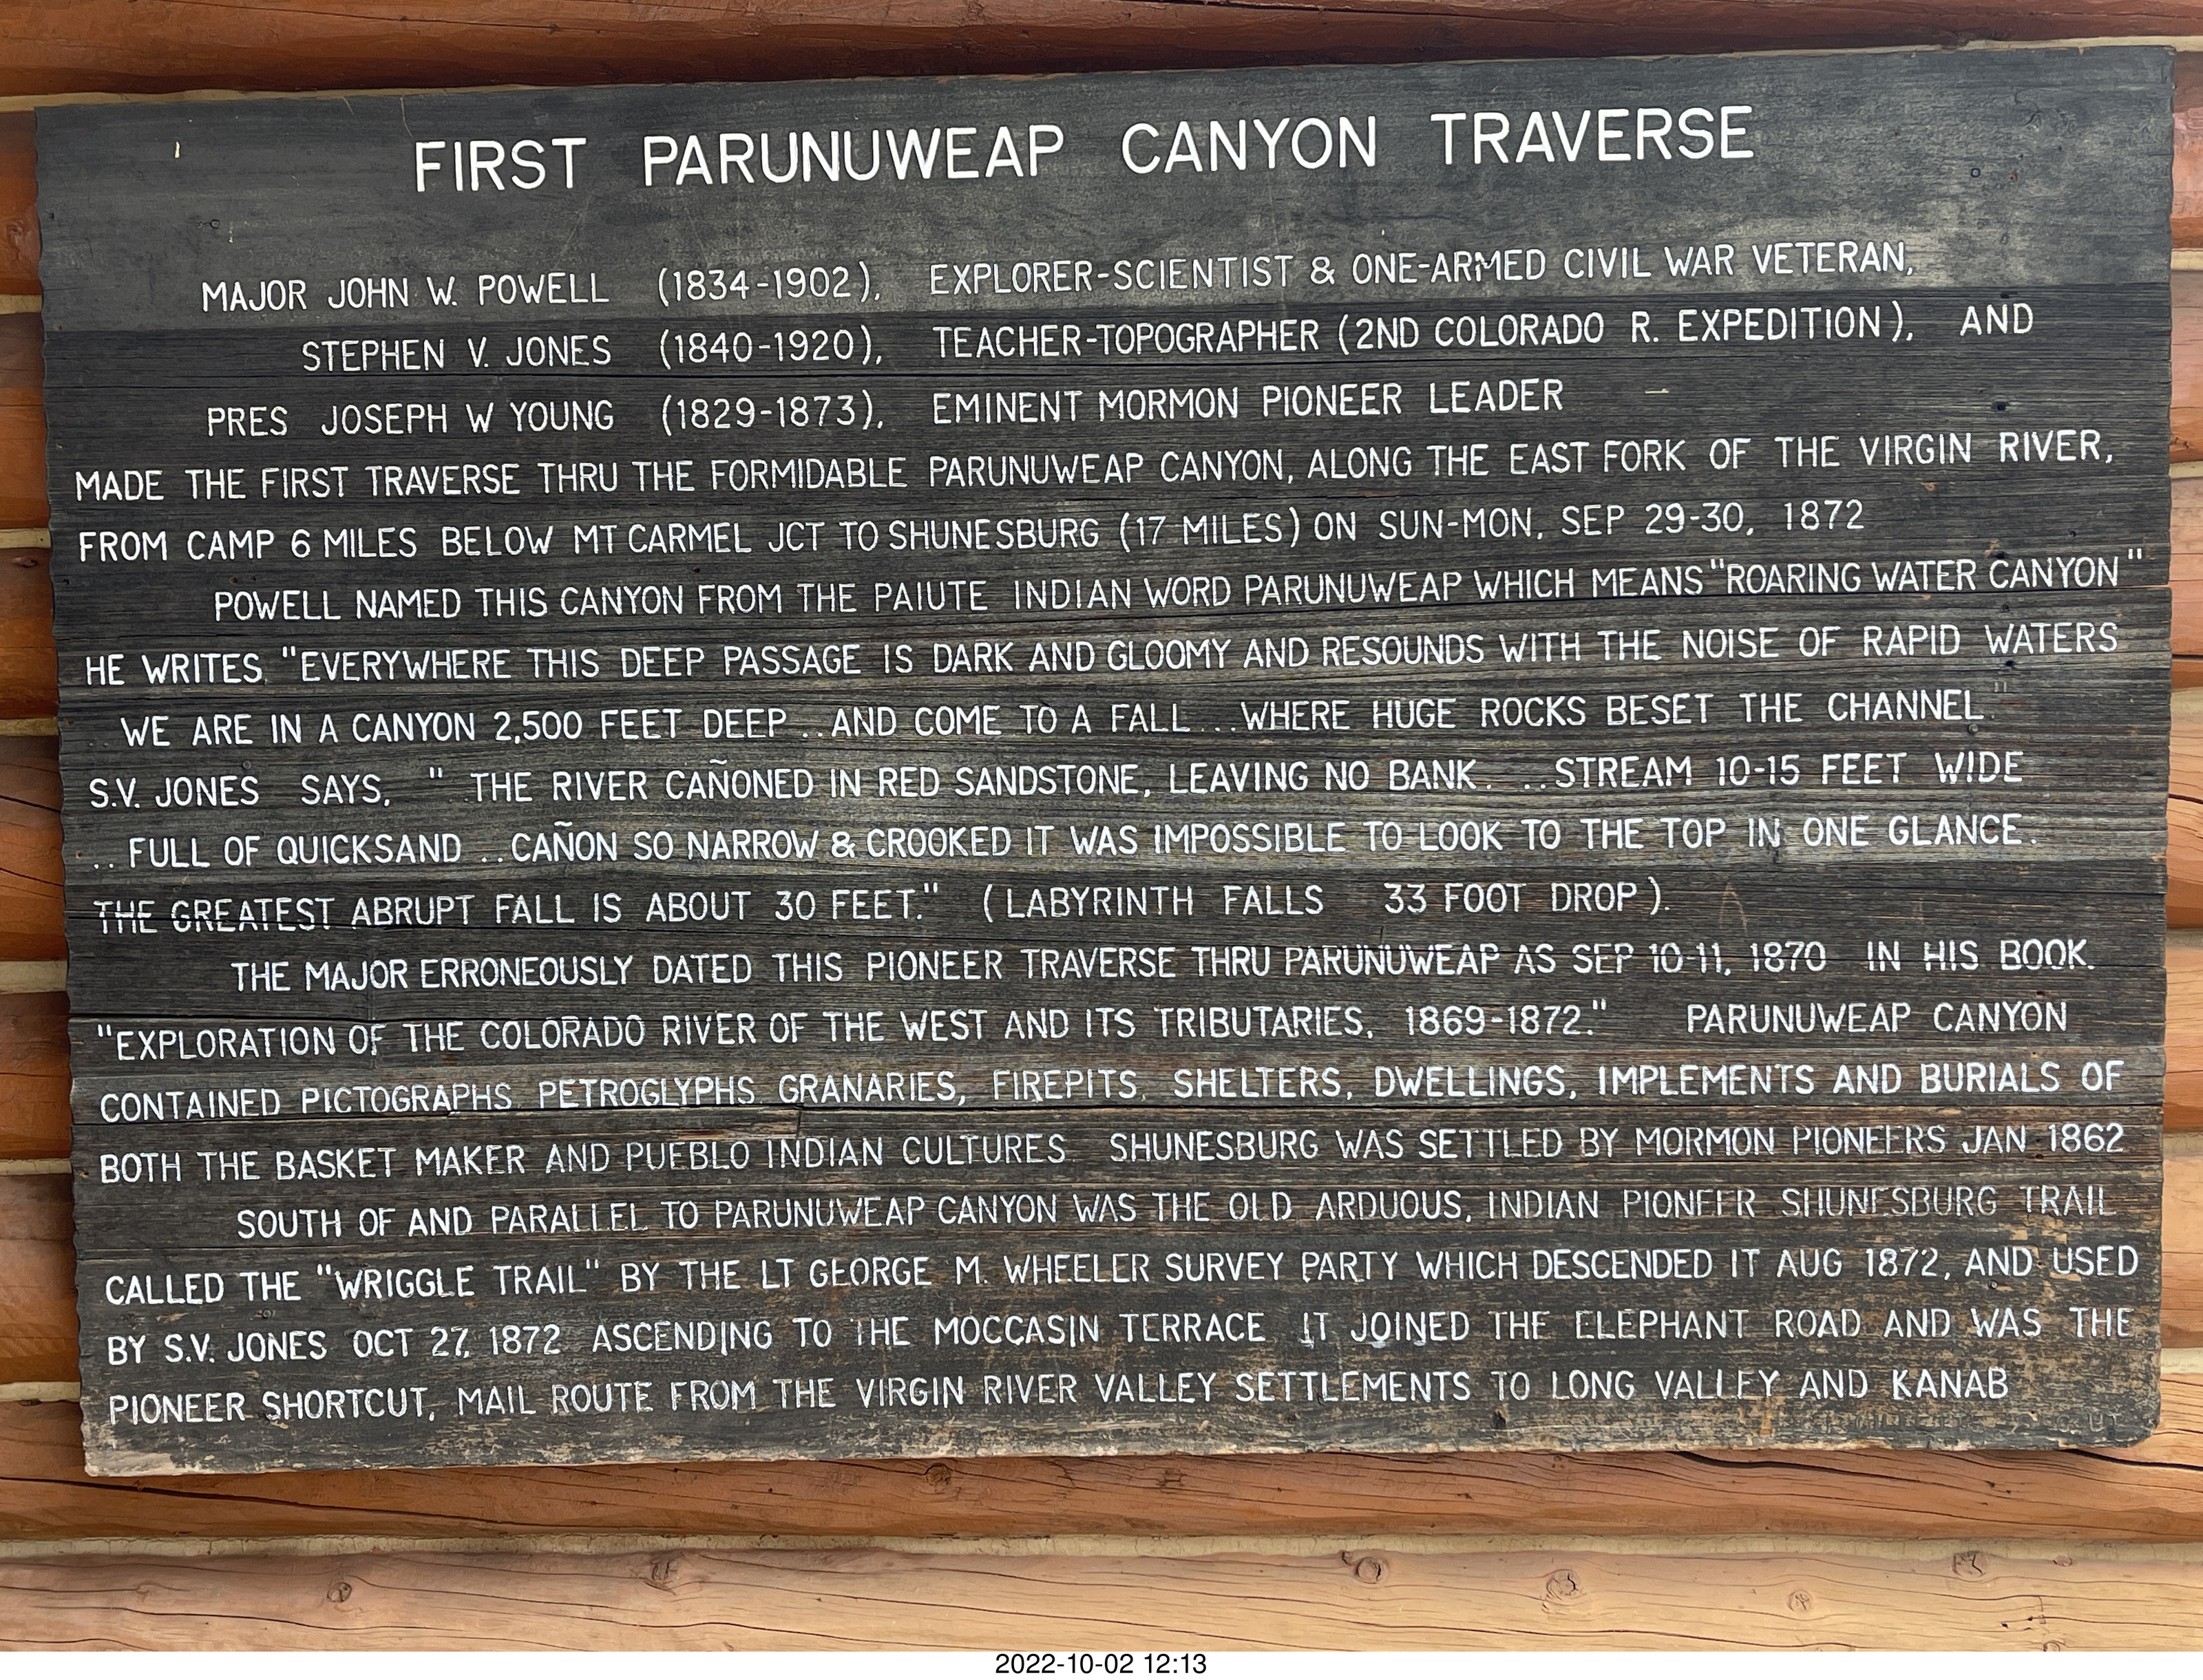 FIRST PARUNUWEAP CANYON TRAVERSE
MAJOR JOHN W. POWELL (1834-1902), EXPLORER-SCIENTIST & ONE-ARMED CIVIL WAR VETERAN,
STEPHEN V. JONES (1840-1920), TEACHER-TOPOGRAPHER (2ND COLORADO R. EXPEDITION), AND
PRES JOSEPH W YOUNG (1829-1873), EMINENT MORMON PIONEER LEADER
MADE THE FIRST TRAVERSE THRU THE FORMIDABLE PARUNUWEAP CANYON, ALONG THE EAST FORK OF THE VIRGIN RIVER,
FROM CAMP 6 MILES BELOW MT CARMEL JCT TO SHUNESBURG (17 MILES) ON SUN-MON, SEP 29-30, 1872
POWELL NAMED THIS CANYON FROM THE PAIUTE INDIAN WORD PARUNUWEAP WHICH MEANS "ROARING WATER CANYON"
HE WRITES "EVERYWHERE THIS DEEP PASSAGE IS DARK AND GLOOMY AND RESOUNDS WITH THE NOISE OF RAPID WATERS
.. WE ARE IN A CANYON 2,500 FEET DEEP ...AND COME TO A FALL ...WHERE HUGE ROCKS BESET THE CHANNEL."
S.V. JONES SAYS, " THE RIVER CAÑONED IN RED SANDSTONE, LEAVING NO BANK. ...STREAM 10-15 FEET WIDE
.. FULL OF QUICKSAND ..CAÑON SO NARROW & CROOKED IT WAS IMPOSSIBLE TO LOOK TO THE TOP IN ONE GLANCE.
THE GREATEST ABRUPT FALL IS ABOUT 30 FEET." (LABYRINTH FALLS 33 FOOT DROP).
THE MAJOR ERRONEOUSLY DATED THIS PIONEER TRAVERSE THRU PARUNUWEAP AS SEP 10-11, 1870 IN HIS BOOK.
"EXPLORATION OF THE COLORADO RIVER OF THE WEST AND ITS TRIBUTARIES, 1869-1872." PARUNUWEAP CANYON
CONTAINED PICTOGRAPHS, PETROGLYPHS GRANARIES, FIREPITS, SHELTERS, DWELLINGS, IMPLEMENTS AND BURIALS OF
BOTH THE BASKET MAKER AND PUEBLO INDIAN CULTURES SHUNESBURG WAS SETTLED BY MORMON PIONEERS JAN 1862
SOUTH OF AND PARALLEL TO PARUNUWEAP CANYON WAS THE OLD ARDUOUS, INDIAN PIONEER SHUNESBURG TRAIL
CALLED THE "WRIGGLE TRAIL" BY THE LT GEORGE M. WHEELER SURVEY PARTY WHICH DESCENDED IT AUG 1872, AND USED
BY S.V. JONES OCT 27, 1872 ASCENDING TO THE MOCCASIN TERRACE IT JOINED THE ELEPHANT ROAD AND WAS THE
PIONEER SHORTCUT, MAIL ROUTE FROM THE VIRGIN RIVER VALLEY SETTLEMENTS TO LONG VALLEY AND KANAB
2022-10-02 12:13